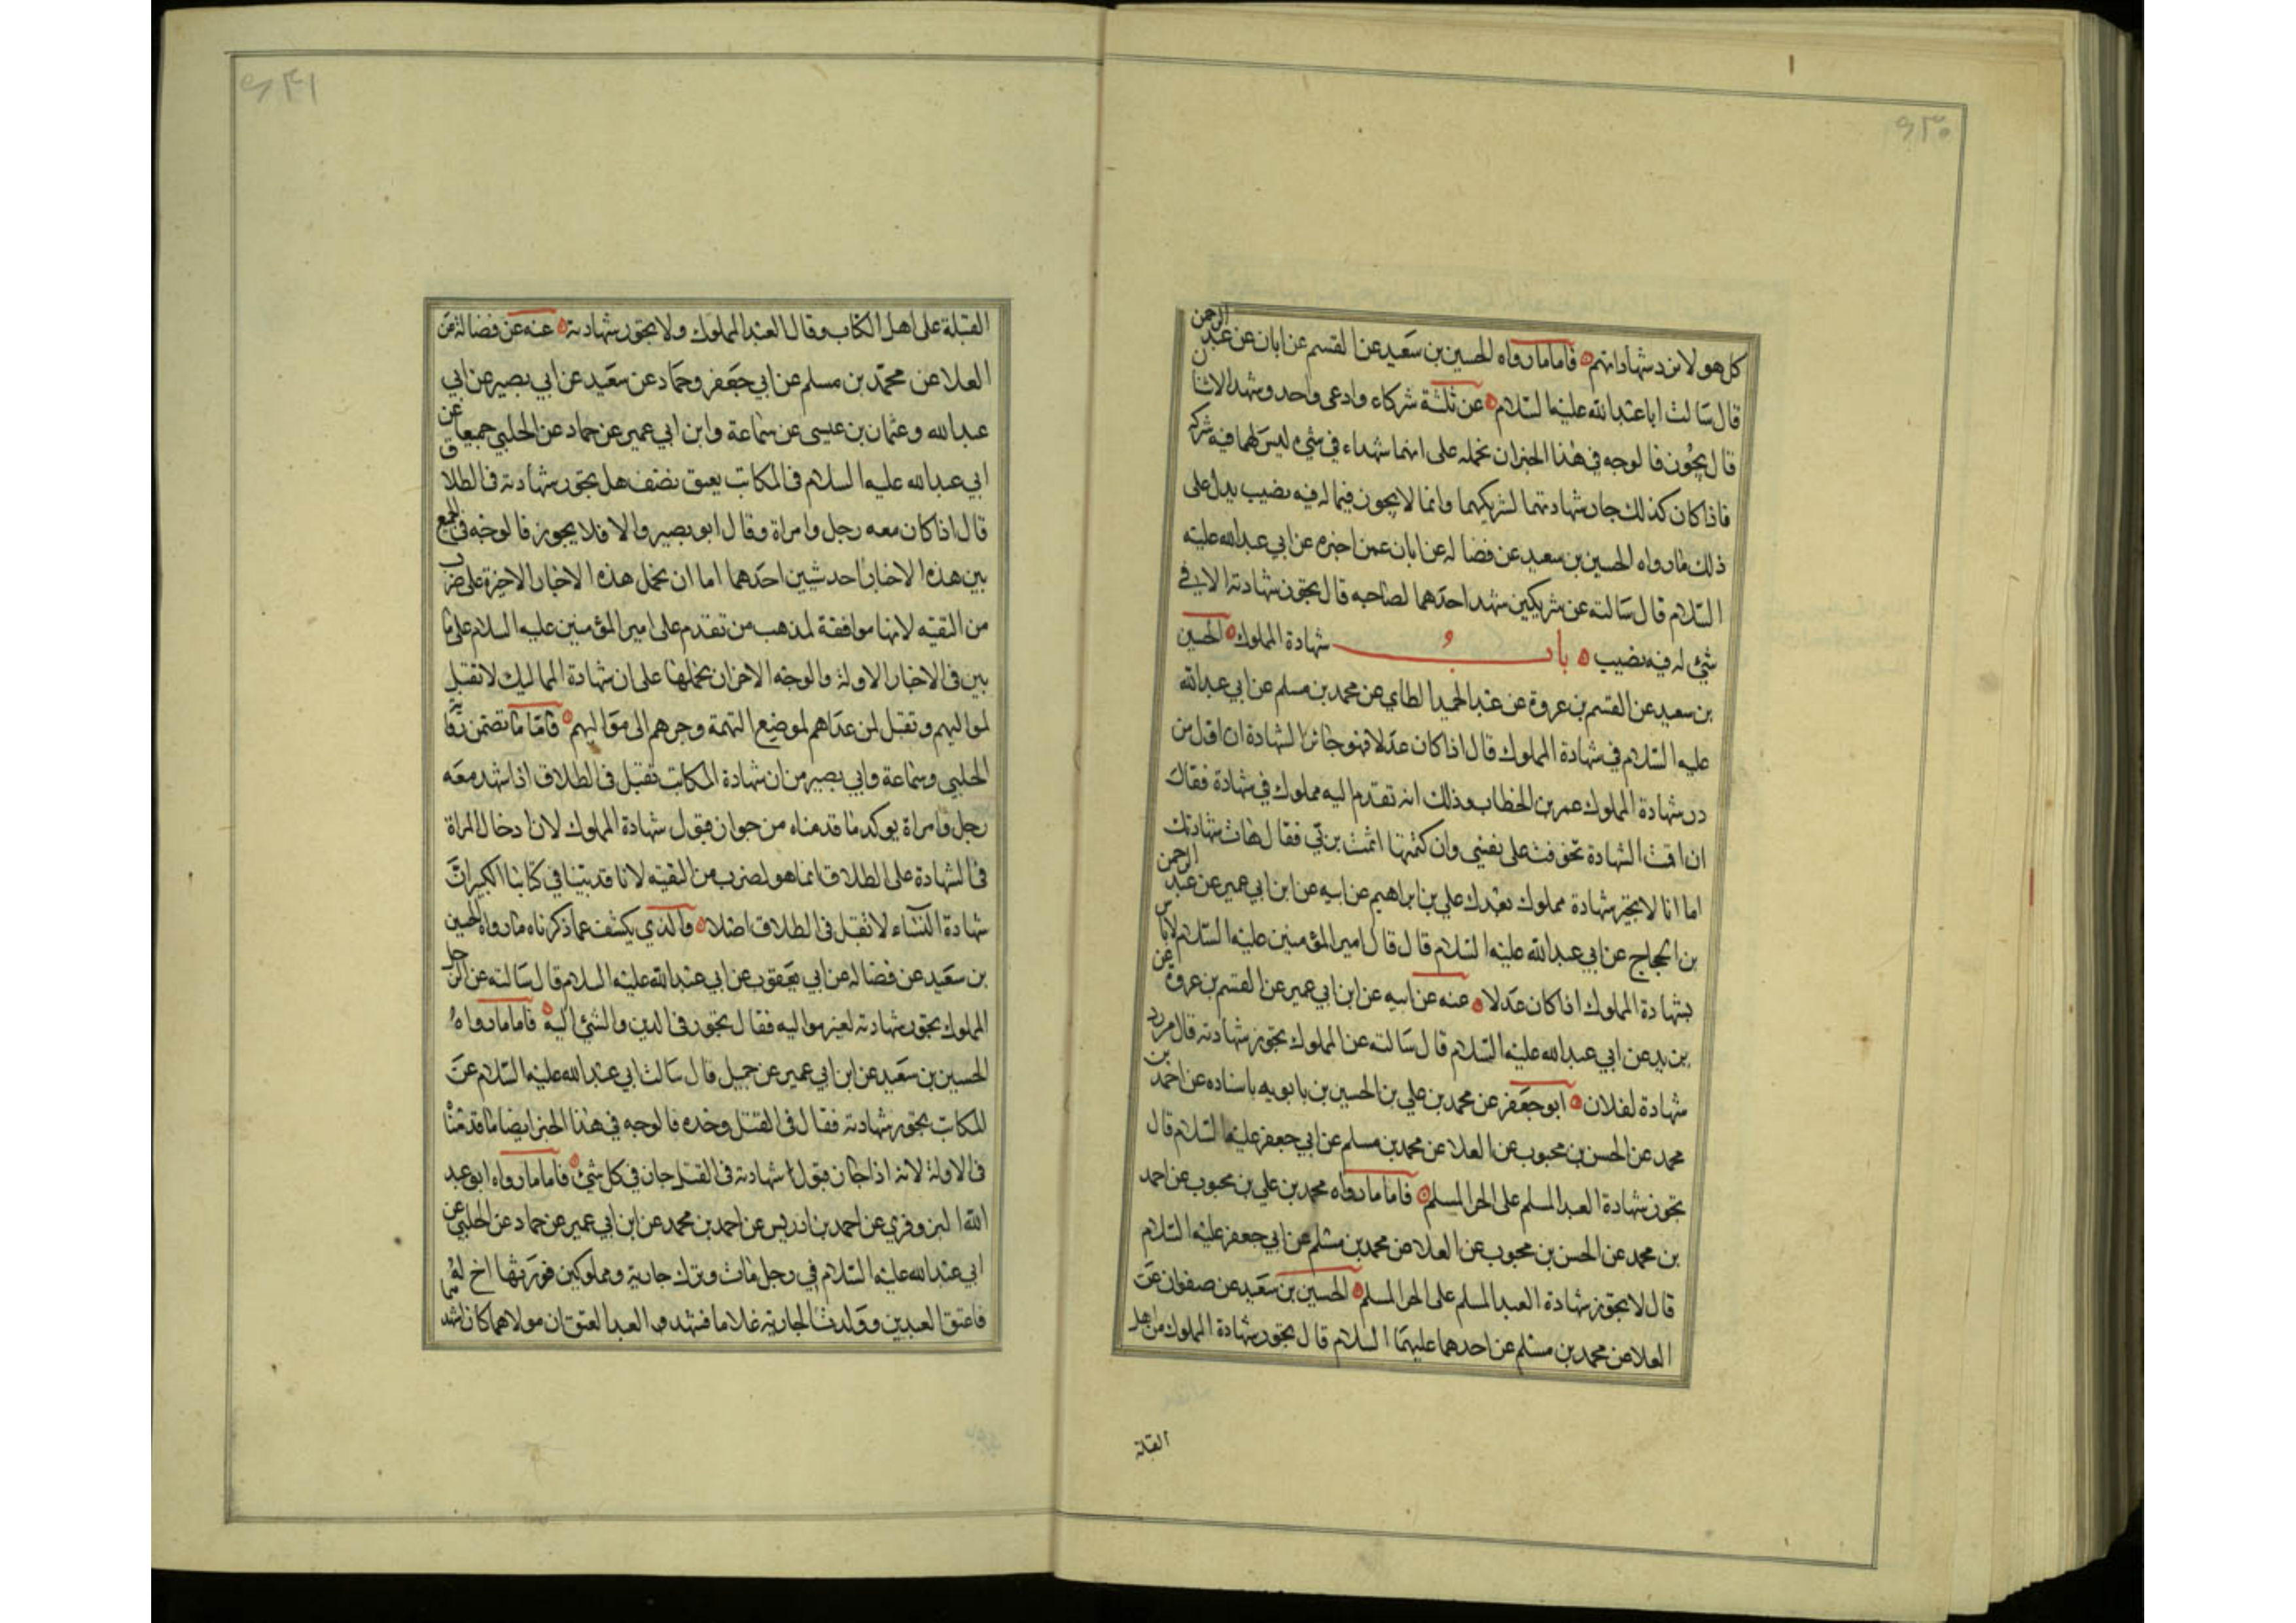 كل هولا نرد شهاداتهم فاما ما رواه الحسين بن سعيد عن القسم عن ابان عن عبد الرحمن
قال سالت ابا عبد الله عليه السلام عن ثلثة شركاء وادعى واحد وشهد الاثنان
قال يجوز فالوجه في هذا الخبر ان نحمله على انهما شهداء في شيء ليس لهما فيه شركة
فاذا كان كذلك جاز شهادتهما لشريكهما وانما لا يجوز فيما له فيه نصيب يدل على
ذلك ما رواه الحسين بن سعيد عن فضاله عن ابان عمن اخبره عن ابي عبد الله عليه
السلام قال سالته عن شريكين شهد احدهما لصاحبه قال يجوز شهادته الا في
شئ له فيه نصيب باب شهادة المملوك الحسين
بن سعيد عن القسم بن عروة عن عبد الحميد الطاي عن محمد بن مسلم عن ابي عبد الله
عليه السلام في شهادة المملوك قال اذا كان عدلا فهو جائز الشهادة ان اول من
رد شهادة المملوك عمر بن الخطاب وذلك انه تقدم اليه مملوك في شهادة فقال
ان اقمت الشهادة تخوفت على نفسي وان كتمتها اثمت بربي فقال هات شهادتك
اما انا لا نجيز شهادة مملوك بعدك علي بن ابراهيم عن ابيه عن ابن ابي عمير عن عبد الرحمن
بن الحجاج عن ابي عبد الله عليه السلام قال قال امير المؤمنين عليه السلام لا باس
بشهادة المملوك اذا كان عدلا عنه عن ابيه عن ابن ابي عمير عن القسم بن عروة عن
بريد عن ابي عبد الله عليه السلام قال سالته عن المملوك يجوز شهادته قال من رد
شهادة لفلان ابو جعفر عن محمد بن علي بن الحسين بن بابويه باسناده عن احمد بن
محمد عن الحسن بن محبوب عن العلا عن محمد بن مسلم عن ابي جعفر عليه السلام قال
تجوز شهادة العبد المسلم على الحر المسلم فاما ما رواه محمد بن علي بن محبوب عن احمد
بن محمد عن الحسن بن محبوب عن العلا عن محمد بن مسلم عن ابي جعفر عليه السلام
قال لا يجوز شهادة العبد المسلم على الحر المسلم الحسين بن سعيد عن صفوان عن
العلا عن محمد بن مسلم عن احدهما عليهما السلام قال يجوز شهادة المملوك من اهل
القبلة
القبلة على اهل الكتاب وقال العبد المملوك ولا يجوز شهادته عنه عن فضالة عن
العلا عن محمد بن مسلم عن ابي جعفر وحماد عن سعيد عن ابي بصير عن ابي
عبد الله وعثمان بن عيسى عن سماعة وابن ابي عمير عن حماد عن الحلبي جميعا عن
ابي عبد الله عليه السلام في المكاتب يعتق نصفه هل يجوز شهادته في الطلاق
قال اذا كان معه رجل وامراة وقال ابو بصير والا فلا يجوز فالوجه في الجمع
بين هذه الاخبار احد شيين احدهما اما ان نحمل هذه الاخبار الاخيرة على ضرب
من التقيه لانها موافقة لمذهب من تقدم على امير المؤمنين عليه السلام على ما
بين في الاخبار الاولة والوجه الاخر ان نحملها على ان شهادة المماليك لا تقبل
لمواليهم وتقبل لمن عداهم لموضع التهمة وجرهم الى مواليهم فاما ما تضمن رواية
الحلبي وسماعة وابي بصير من ان شهادة المكاتب تقبل في الطلاق اذا شهد معه
رجل وامراة يوكد ما قدمناه من جواز قبول شهادة المملوك لان ادخال المراة
في الشهادة على الطلاق انما هو لضرب من التقيه لانا قد بينا في كتابنا الكبير ان
شهادة النساء لا تقبل في الطلاق اصلا والذي يكشف عما ذكرناه ما رواه الحسين
بن سعيد عن فضاله عن ابي يعقوب عن ابي عبد الله عليه السلام قال سالته عن الرجل
المملوك يجوز شهادته لغير مواليه فقال يجوز في الدين والشئ اليه فاما ما رواه
الحسين بن سعيد عن ابن ابي عمير عن جميل قال سالت ابي عبد الله عليه السلام عن
المكاتب يجوز شهادته فقال في القتل وحده فالوجه في هذا الخبر ايضا ما قدمنا
في الاولة لانه اذا جاز قبول شهادته في القتل جاز في كل شئ فاما ما رواه ابو عبد
الله البزوفري عن احمد بن ادريس عن احمد بن محمد عن ابن ابي عمير عن حماد عن الحلبي عن
ابي عبد الله عليه السلام في رجل مات وترك جارية ومملوكين فورثها اخ له
فاعتق العبدين وولدت الجارية غلاما فشهد العبد العتق ان مولاهما كان اشهد